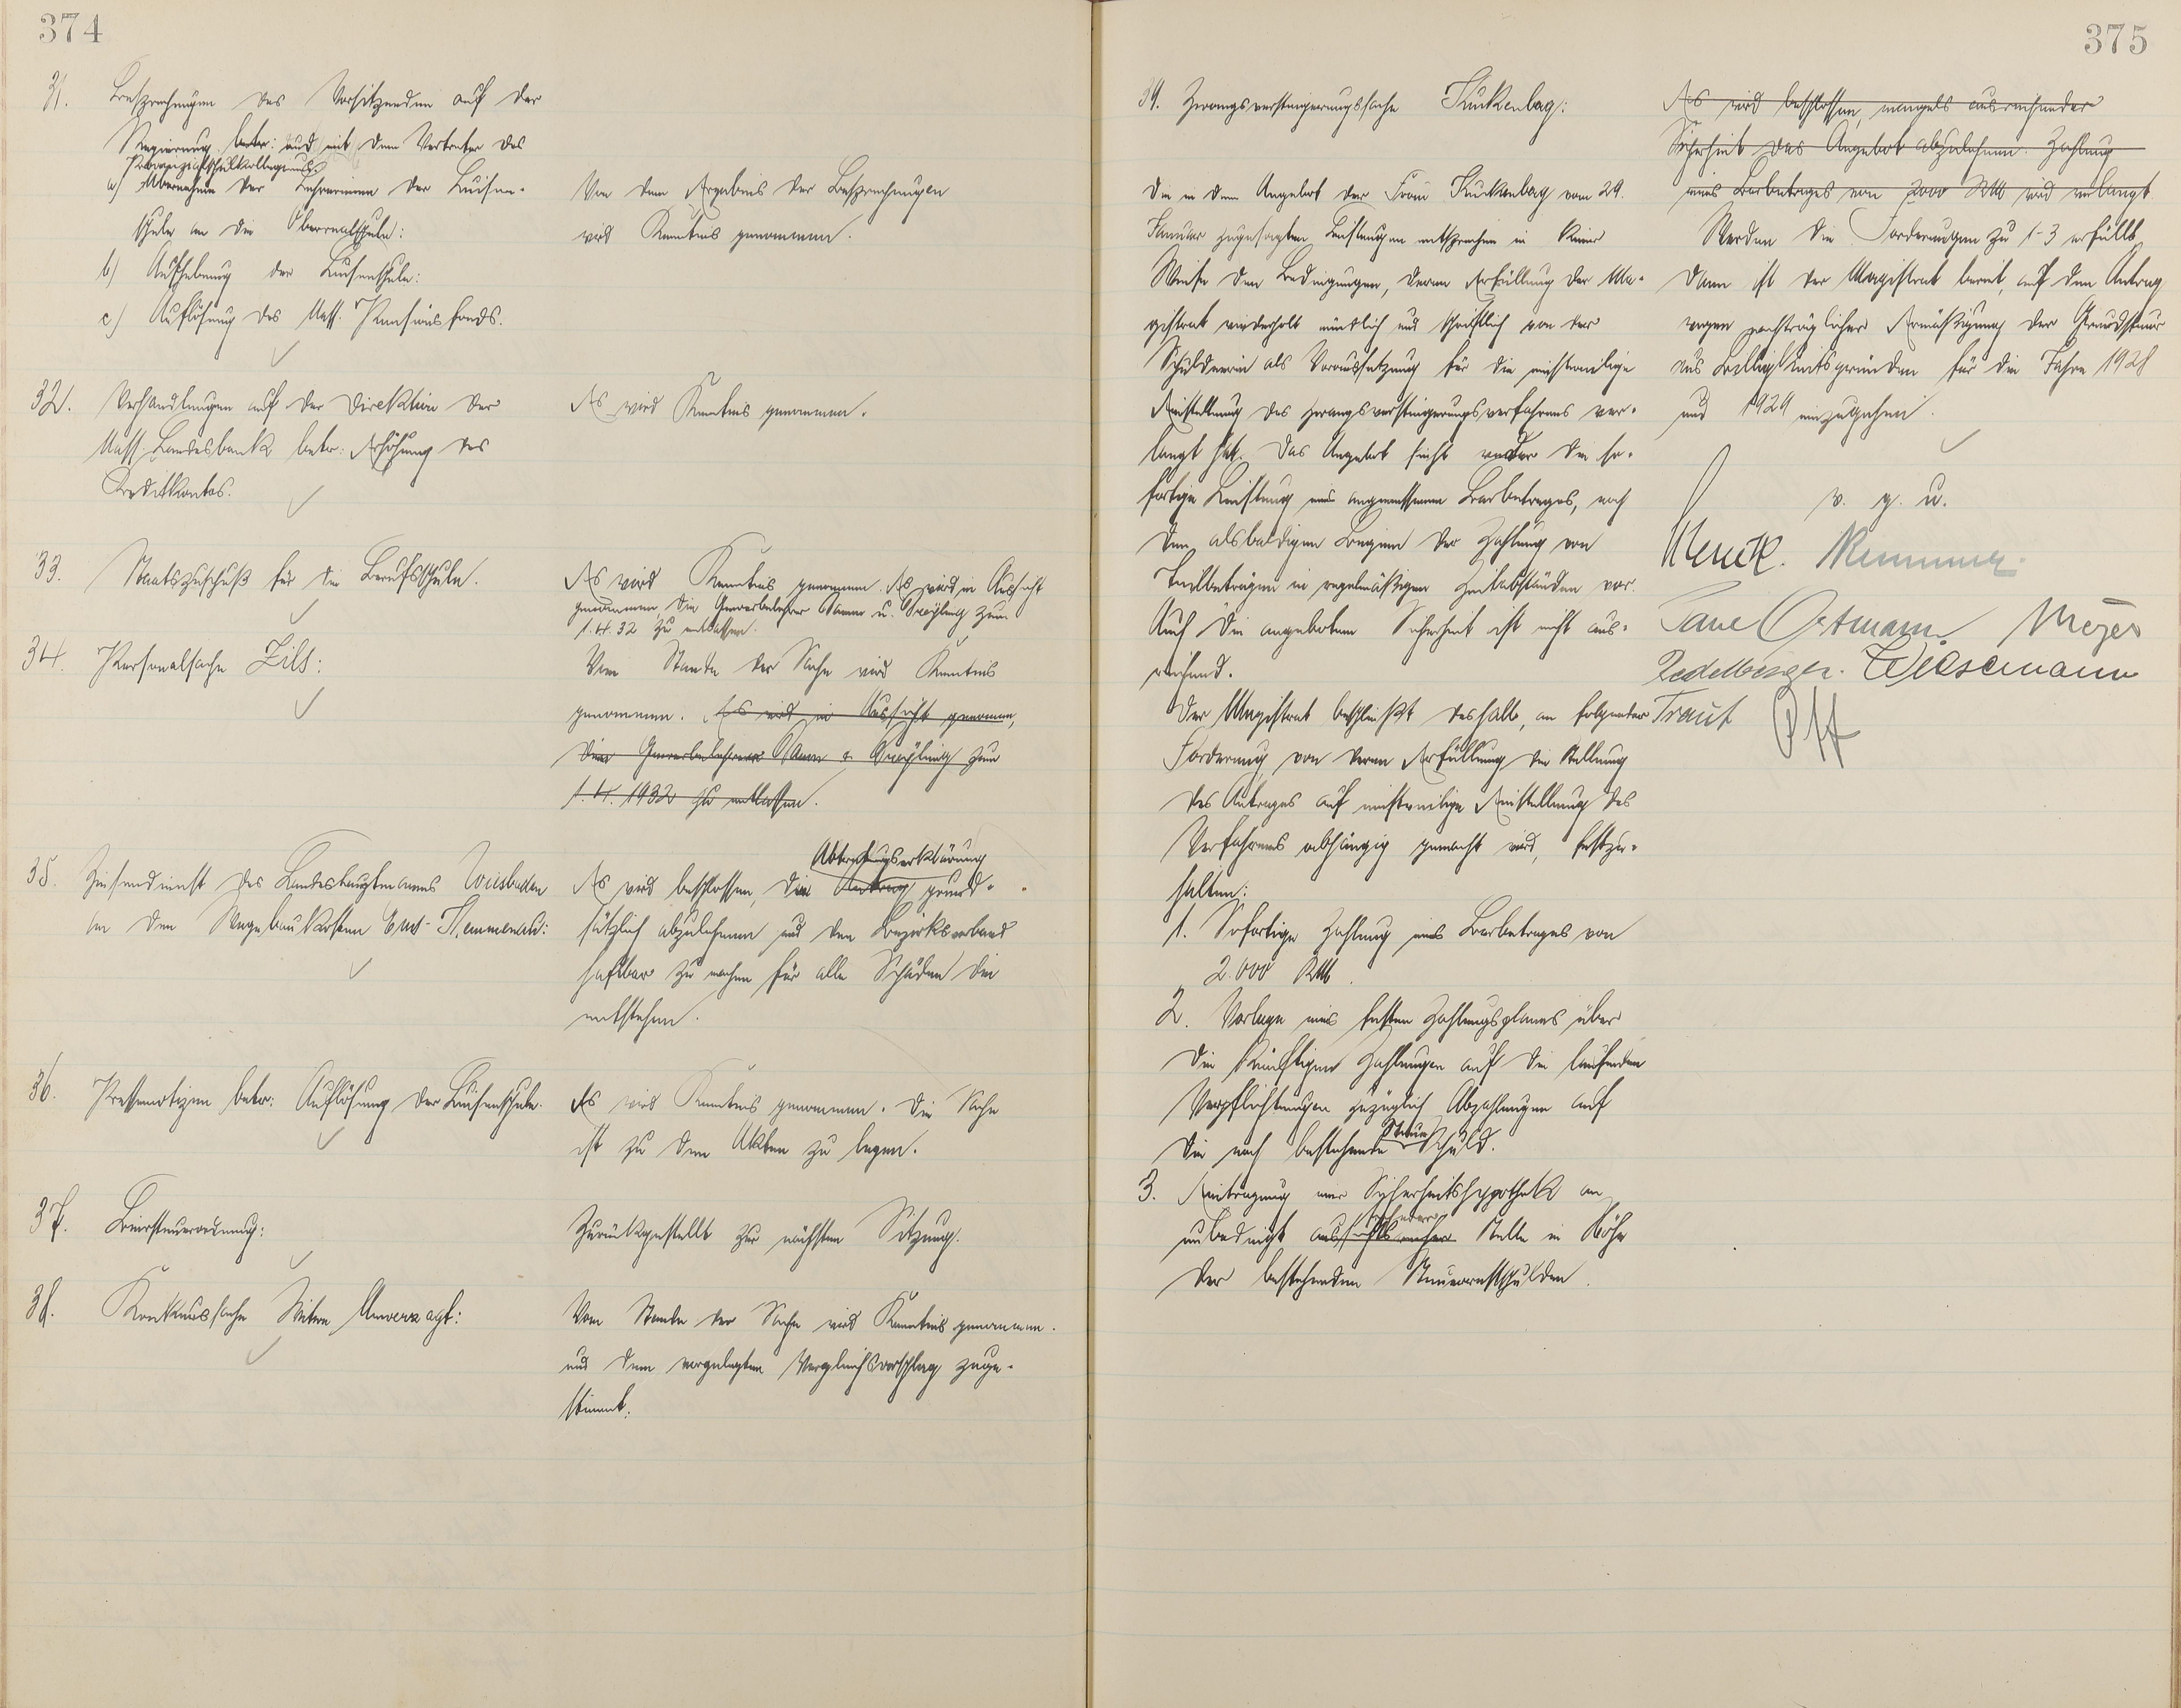 374
31. Besprechungen des Vorsitzenden auf der
Regierung betr: und mit dem Vertreter des
Provinzialschulkollegiums:
a) Übernahme der Lehrerinnen der Luisen-
schule an die Oberrealschule:
b) Aufhebung der Luisenschule:
c) Auflösung des Nass. Pensionsfonds.
Von dem Ergebnis der Besprechungen
wird Kenntnis genommen.
32. Verhandlungen auf der Direktion der
Nass. Landesbank betr. Erhöhung des
Kreditkontos.
Es wird Kenntnis genommen.
33. Staatszuschuß für die Berufsschule.
Es wird Kenntnis genommen. Es wird in Aussicht
genommen, die Gewerbelehrer u. zum
1.4.32 zu entlassen.
34. Personalsache Zils:
Vom Stande der Sache wird Kenntnis
genommen. Es wird in Aussicht genommen,
die Gewerbelehrer & zum
1.4.1932 zu entlassen.
35. Zinsendienst des Landeshauptmanns Wiesbaden
an den Wegebaukosten Ems-Kemmenau:
Abtretungserklärung
Es wird beschlossen, die Antrag grund-
sätzlich abzulehnen und den Bezirksverband
haftbar zu machen für alle Schäden die
entstehen.
36. Pressenotizen betr: Auflösung der Luisenschule.
Es wird Kenntnis genommen. Die Sache
ist zu den Akten zu legen.
37. Biersteuerordnung:
Zurückgestellt zur nächsten Sitzung.
38. Konkurssache Witwe Unverzagt:
Vom Stande der Sache wird Kenntnis genommen.
und dem vorgelegten Vergleichsvorschlag zuge-
stimmt.
375
39. Zwangsversteigerungssache Kuckenbag:
Die in dem Angebot der Frau Kuckenbag vom 29.
Januar zugesagten Leistungen entsprechen in keiner
Weise den Bedingungen, deren Erfüllung der Ma-
gistrat wiederholt mündlich und schriftlich von der
Schuldnerin als Voraussetzung für die einstweilige
Einstellung des Zwangsversteigerungsverfahrens ver-
langt hat. Das Angebot sieht weder die so-
fortige Leistung eines angemessenen Barbetrages, noch
den alsbaldigen Beginn der Zahlung von
Teilbeträgen in regelmäßigen Zeitabständen vor.
Auch die angebotene Sicherheit ist nicht aus-
reichend.
Der Magistrat beschließt deshalb, an folgender
Forderung, von deren Erfüllung die Stellung
des Antrages auf einstweilige Einstellung des
Verfahrens abhängig gemacht wird, festzu-
halten:
1. Sofortige Zahlung eines Barbetrages von
2.000 RM.
2. Vorlage eines festen Zahlungsplanes über
die künftigen Zahlungen auf die laufenden
Verpflichtungen zuzüglich Abzahlungen auf
die noch bestehende Steuerschuld.
3. Eintragung einer Sicherheitshypothek an
unbedingt Stelle in Höhe
der bestehenden Steuerrestschulden.
Es wird beschlossen, mangels ausreichender
Sicherheit das Angebot abzulehnen. Zahlung
eines Barbetrages von 2000 RM wird verlangt
Werden die Forderungen zu 1-3 erfüllt,
dann ist der Magistrat bereit, auf den Antrag
wegen nachträglicher Ermäßigung der Grundsteuer
aus Billigkeitsgründen für die Jahre 1928
und 1929 einzugehen.
v. g. u.
Ortmann Meyer
Wiesemann
Traut